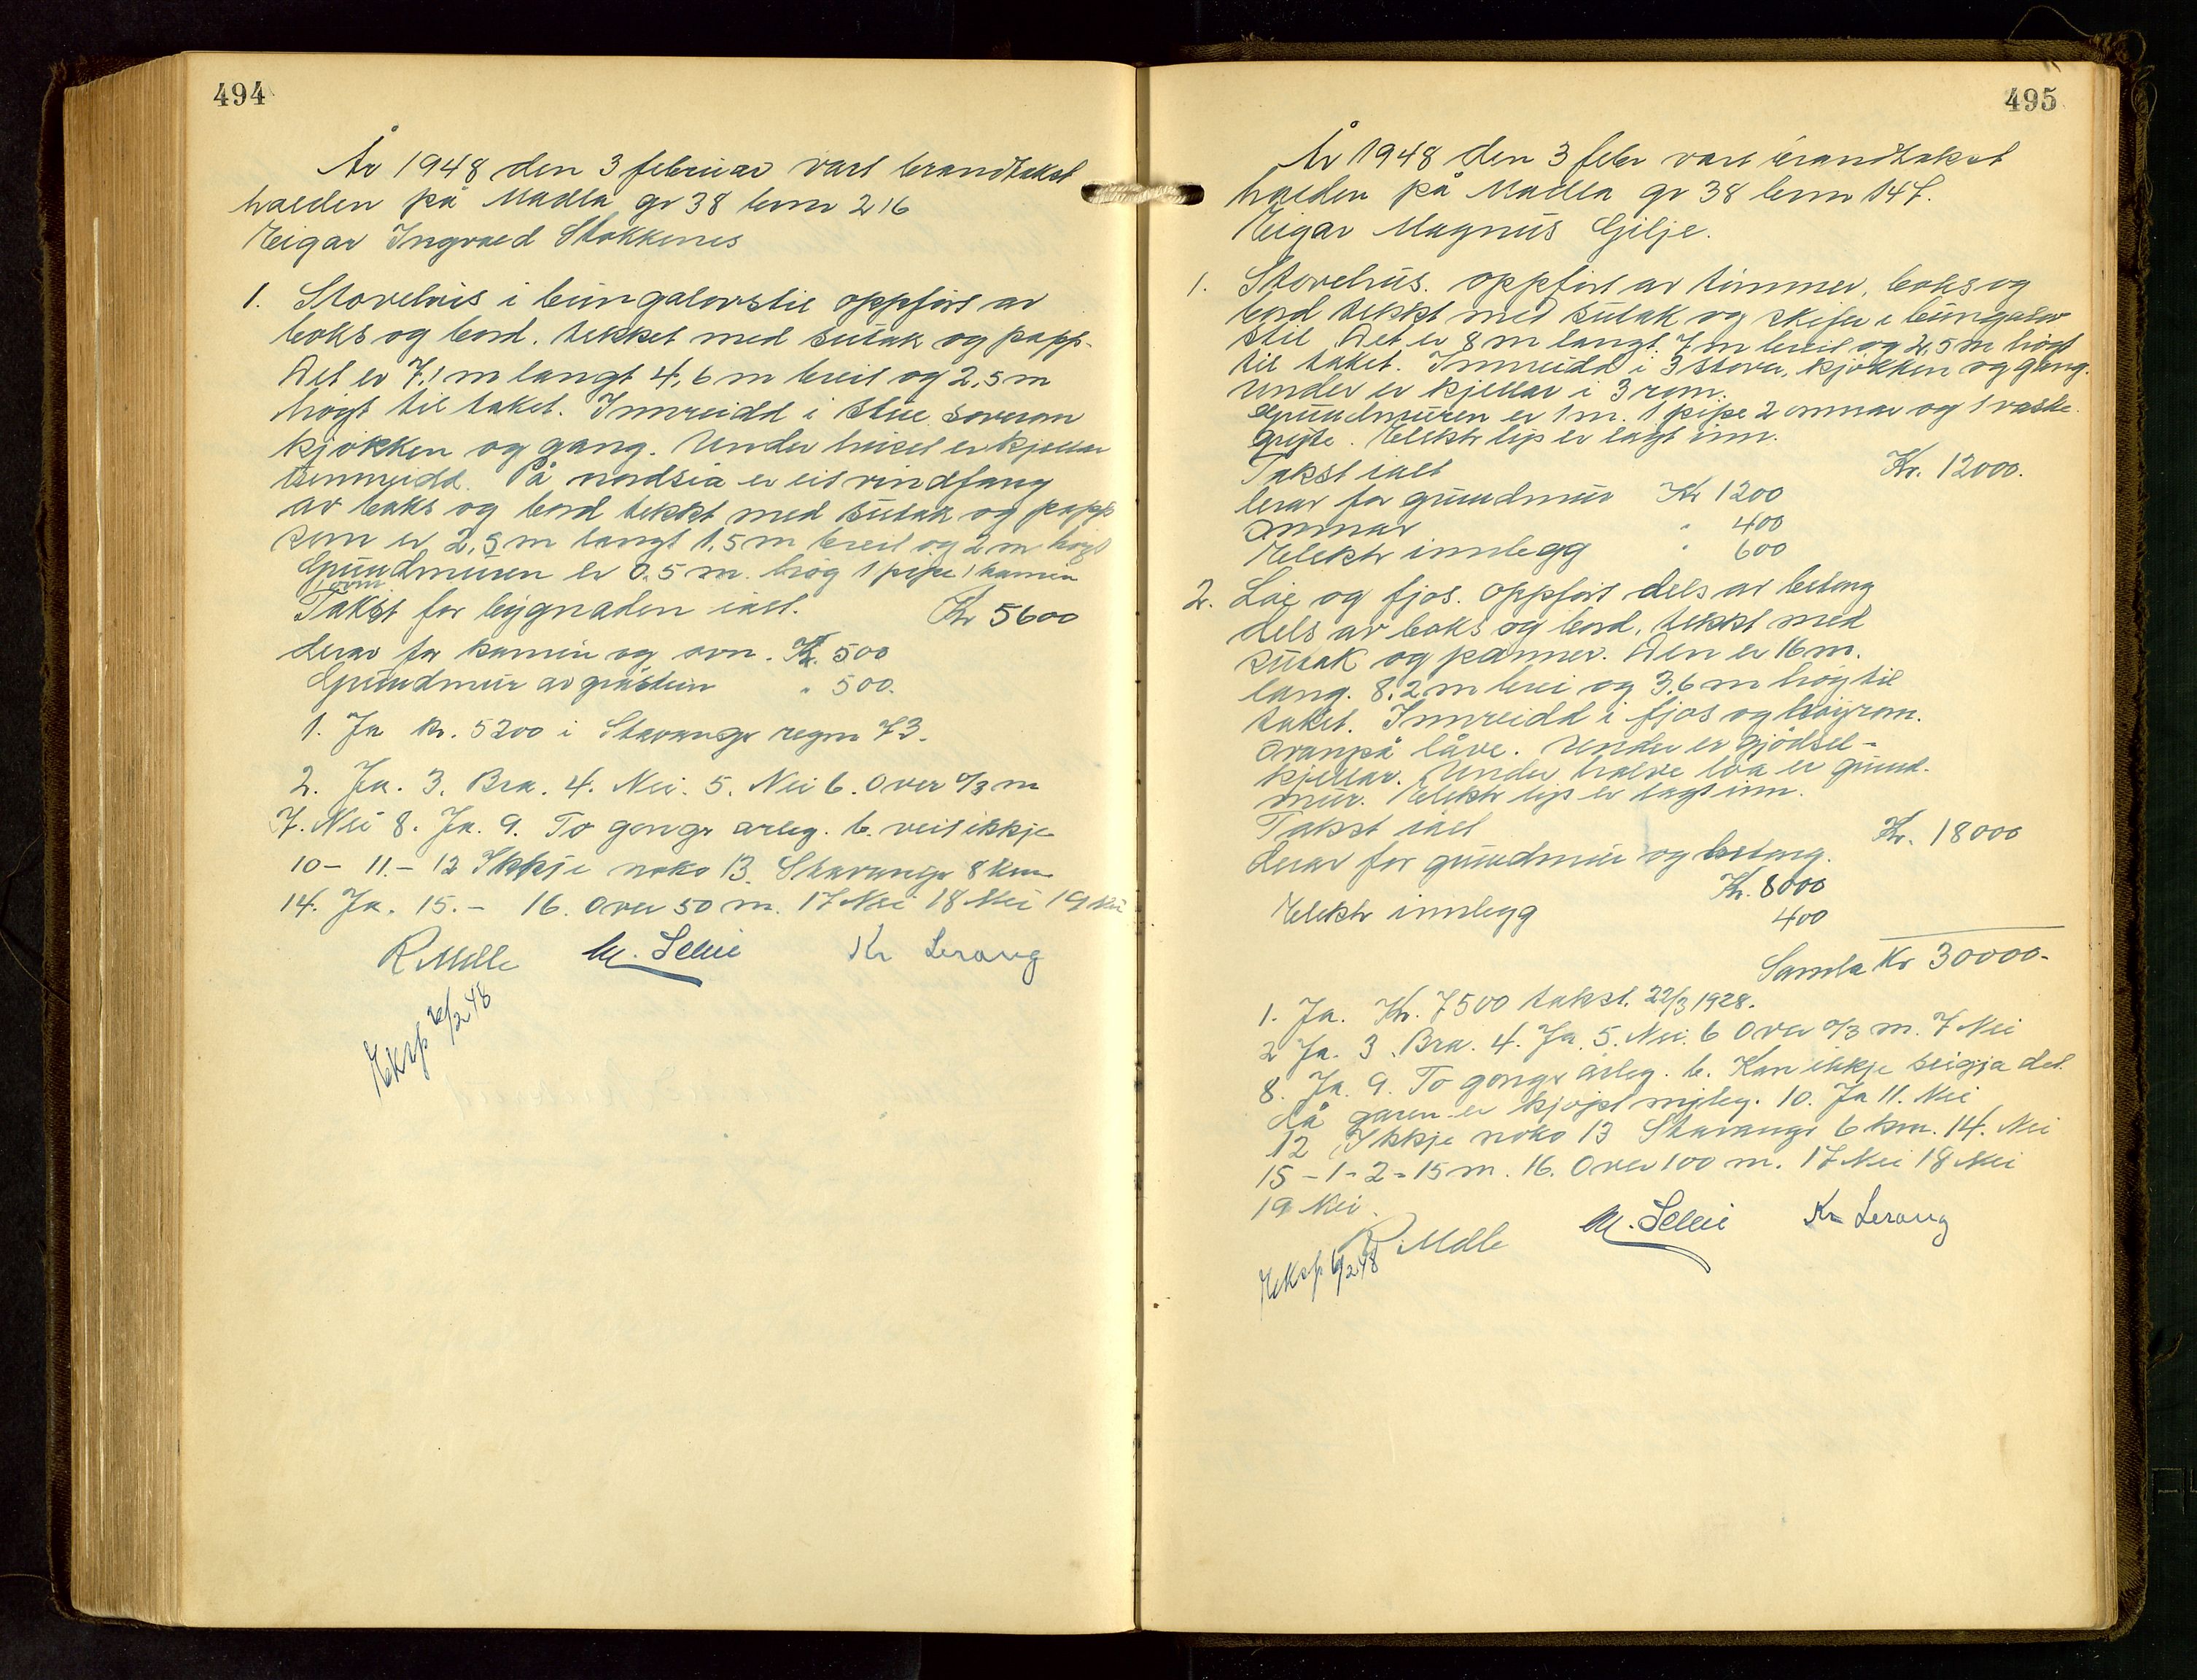 494
År 1948 den 3 februar vart brandtakst
halden på Madla gr 38 bnr 216
Eigar Ingvald Stokkenes
1. Stovehus i bungalovstil oppført av
boks og bord. tekket med sutak og papp.
Det er 7,1 m langt 4,6 m breit og 2,5 m
høgt til taket. Innreidd i stue soverom
kjøkken og gang. Under huset er kjellar
uinnreidd. På nordsia er eit vindfang
av boks og bord tekkt med sutak og papp
som er 2,5 m langt 1,5 m breit og 2 m høgt
Grundmuren er 0.5 m. høg 1 pipe 1 kamin
1 ovn
Takst for bygnaden ialt. Kr 5600
derav for kamin og ovn. Kr. 500
Grundmur av gråstein " 500.
1. Ja kr. 5200 i Stavanger regnr 73.
2. Ja. 3. Bra. 4. Nei. 5. Nei 6. Over 0/3 m
7. Nei 8. Ja. 9. To gonger årleg. b. veit ikkje
10- 11.- 12 Ikkje noko 13. Stavanger 8 km
14. Ja. 15.- 16. Over 50 m. 17 Nei 18 Nei 19 Nei
R Melle M. Selvi Kr Lerang
Eksp 6/2 48
495
År 1948 den 3 febr vart brandtakst
halden på Madla gr 38 bnr 147.
Eigar Magnus Gilje.
1. Stovehus. oppført av timmer, boks og
bord tekkt med sutak og skifer i bungalov
stil Det er 8 m langt 7 m breit og 2,5 m høgt
til taket. Innreidd i 3 stover, kjøkken og gang.
Under er kjellar i 3 rom.
Grundmuren er 1 m. 1 pipe 2 omnar og 1 vaske
gryte. Elektr lys er lagt inn.
Takst ialt Kr. 12000.
derav for grundmur Kr 1200
Omnar " 400
Elektr innlegg " 600
2. Løe og fjøs. oppført dels av betong
dels av boks og bord, tekkt med
sutak og panner. Den er 16 m.
lang. 8,2 m brei og 3,6 m høg til
taket. Innreidd i fjøs og høyrom.
ovanpå låve. Under er gjødsel-
kjellar. Under halve løa er grund-
mur. Elektr lys er lagt inn.
Takst ialt Kr. 18000
derav for grundmur og betong.
Kr. 8000
Elektr innlegg 400
Samla Kr 30000-
1. Ja. Kr. 7500 takst. 22/3 1928.
2 Ja. 3. Bra. 4. Ja. 5. Nei. 6 Over 0/3 m. 7 Nei
8. Ja. 9. To gonger årleg. b. Kan ikkje seigja det
då garen er kjøpt nyleg. 10. Ja 11. Nei
12 Ikkje noko 13 Stavanger 6 km. 14. Nei
15 - 1 - 2 = 15 m. 16. Over 100 m. 17 Nei 18 Nei
19 Nei.
R Melle M. Selvi Kr Lerang
Eksp 6/2 48